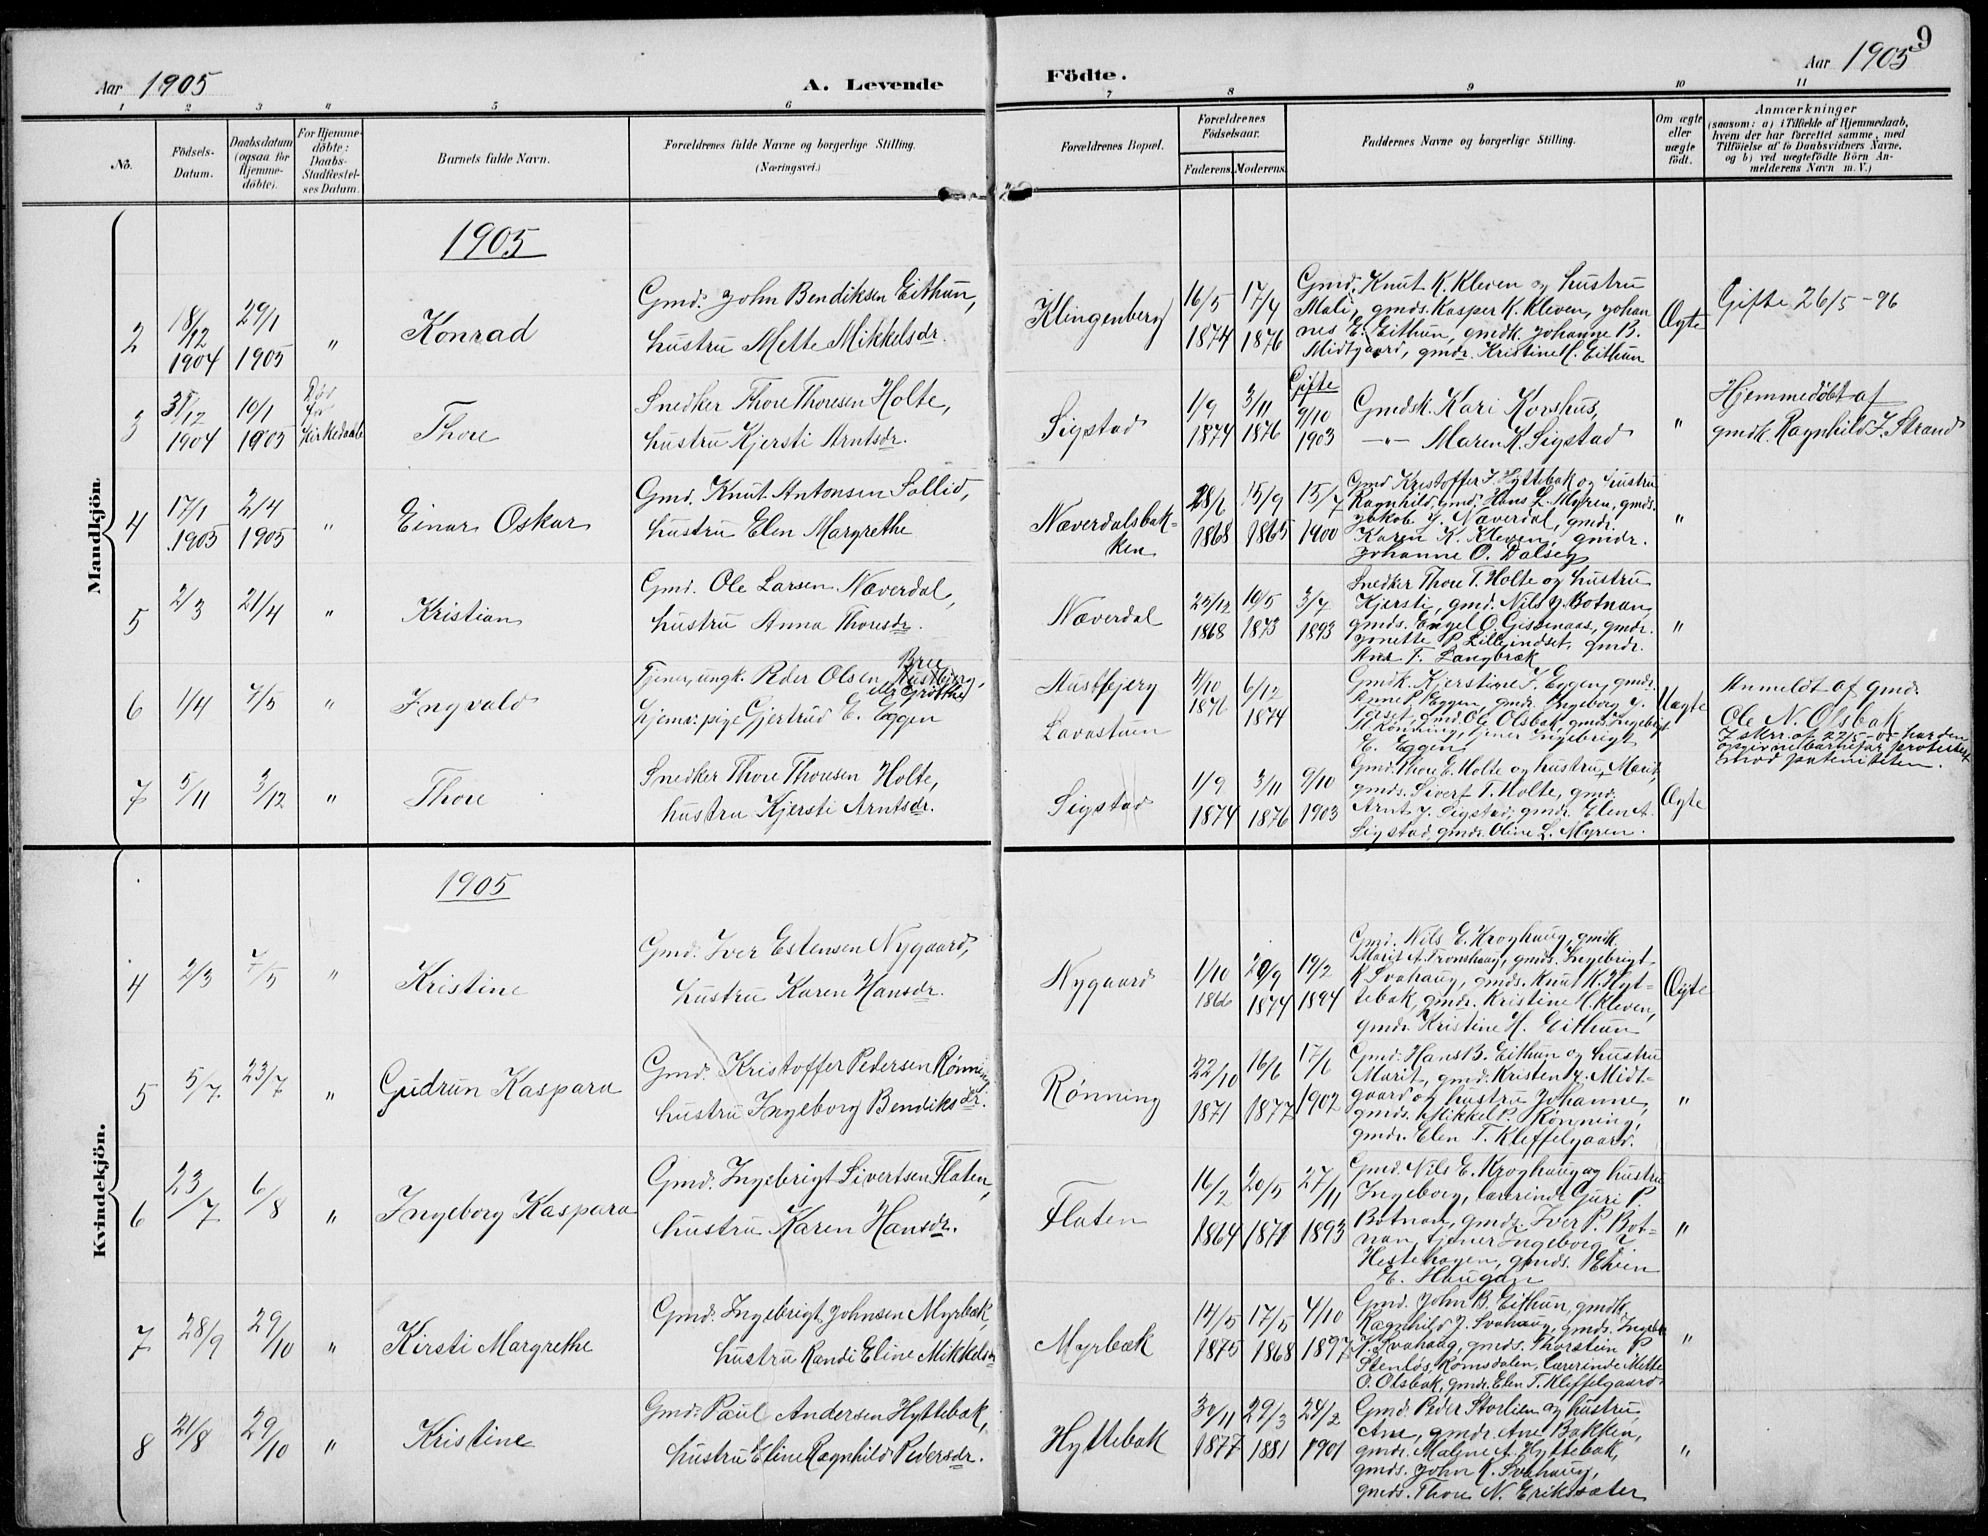 9
Aar 1905
A. Levende
Födte.
Aar 1905
1 2 3 4 5 6 7 8 9 10 11
No.
Födsels-Datum.
Daabsdatum (ogsaa for Hjemmedöbte).
For Hjemmedöbte: Daabs-Stadfæstelses Datum.
Barnets fulde Navn.
Forældrenes fulde Navne og borgerlige Stilling. (Næringsvei.)
Forældrenes Bopæl.
Forældrenes Födselsaar.
Faderens. Moderens.
Faddernes Navne og borgerlige Stilling.
Om ægte eller uægte födt.
Anmærkninger
(saasom: a) i Tilfælde af Hjemmedaab,
hvem der har forrettet samme, med
Tilföielse af to Daabsvidners Navne,
og b) ved uægtefödte Börn An-
melderens Navn m. V.)
Mandkjön.
1905
2 18/12 1904 29/1 1905 " Konrad
Gmd. John Bendiksen Eithun,
hustru Mette Mikkelsdr.
Klingenberg 16/5 1874 17/4 1876
Gmd. Knut K. Kleven og hustru
Mali, gmds. Kasper K. Kleven, Johan
nes E. Eithun, gmdk. Johanne B.
Midtgaard, gmdr. Kristine M. Eithun
Ægte Gifte 26/5 - 96
3 31/12 1904 10/1 1905 Død før Kirkedaab Thore
Snedker Thore Thoresen Holte,
hustru Kjersti Arntsdr.
Sigstad 1/9 1874 3/11 1876 Gifte 9/10 1903
Gmdsk. Kari Korshus,
-"- Maren K. Sigstad
" Hjemmedøbt af
gmdk. Ragnhild J. Strand
4 17/1 1905 2/4 1905 " Einar Oskar
Gmd. Knut Antonsen Sollid,
hustru Elen Margrethe
Næverdalsbak-
ken 28/6 1868 15/9 1865 15/7 1900
Gmd Kristoffer J. Hyttebak og hustru
Ragnhild, gmd. Hans L. Myren, gmds.
Jakob J. Næverdal, gmdr.
Karen K. Kleven, gmdr.
Johanne O. Dalseg
"
5 2/3 21/4 " Kristian
Gmd. Ole Larsen Næverdal,
hustru Anna Thoresdr.
Næverdal 23/12 1868 10/5 1873 3/7 1893
Snedker Thore T. Holte og hustru
Kjersti, gmd. Nils J. Botnan,
gmds. Engel O. Gissenaas, gmdr.
Jonette P. Lilleindset, gmdr.
Ane T. Langbræk
"
6 1/4 7/5 " Ingvald
Tjener, ungk. Peder Olsen Bree Austbjerg,
eller Grøthe
hjemv. pige Gjertrud E. Eggen
Austbjerg
Lovastuen 4/10 1876 6/12 1874
Gmdk. Kjerstine T. Eggen, gmdr.
Anne P. Eggen, gmdr. Ingeborg J.
gmd. Ole Olsbak, gmds. Ingebrigt
Rønning, tjener Ingebrigt
E. Eggen
Uægte Anmeldt af gmd.
Ole N. Olsbak
I skr. af 22/5 - 05 har den
opgivne barnefar protesteret
mod paterniteten.
7 5/11 3/12 " Thore
Snedker Thore Thoresen Holte,
hustru Kjersti Arntsdr.
Sigstad 1/9 1874 3/11 1876 9/10 1903
Gmd. Thore E. Holte og hustru Marit,
gmds. Sivert T. Holte, gmd.
Arnt J. Sigstad, gmdr. Elen A.
Sigstad, gmdr. Oline L. Myren.
Ægte
Kvindekjön.
1905
4 2/3 7/5 " Kristine
Gmd. Iver Estensen Nygaard,
hustru Karen Hansdr.
Nygaard 1/10 1866 20/9 1874 19/2 1894
Gmd. Nils E. Kroghaug, gmdk.
Marit A. Tronshaug, gmds. Ingebrigt
K Svahaug, gmds. Knut K. Hyt-
tebak, gmdr. Kristine H. Kleven,
gmdr. Kristine H. Eithun
Ægte
5 5/7. 23/7 " Gudrun Kaspara
Gmd. Kristoffer Pedersen Rønning
hustru Ingeborg Bendiksdr.
Rønning 22/10 1871 16/6 1877 17/6 1902
Gmd. Hans B. Eithun og hustru
Marit, gmd. Kristen J. Midt-
gaard og hustru Johanne,
gmds. Mikkel P. Rønning,
gmdr. Elen T. Kleffelgaard.
"
6 23/7 6/8 " Ingeborg Kaspara
Gmd. Ingebrigt Sivertsen Flaten,
hustru Karen Hansdr.
Flaten 16/2 1864 20/5 1871 27/11 1893
Gmd. Nils E. Kroghaug og hustru
Ingeborg, lærerinde Guri P.
Botnan, gmdr. Iver P. Bot-
nan, tjener Ingeborg T.
Hestehagen, gmds. Even
E. Haugan
"
7 28/9 29/10 " Kirsti Margrethe
Gmd. Ingebrigt Johnsen Myrbæk,
hustru Randi Eline Mikkelsdr
Myrbæk 14/5 1875 17/5 1868 4/10 1897
Gmd. John B. Eithun, gmdk.
Ragnhild J. Svahaug, gmds. Ingebr.
K. Svahaug, gmds. Thorstein P
Stenløs, Romsdalen, lærerinde Mette
O. Olsbak, gmdr. Elen T. Kleffelgaard
"
8 21/8 29/10 " Kristine
Gmd. Paul Andersen Hyttebak,
hustru Eline Ragnhild Pedersdr.
Hyttebak 30/11 1877 29/3 1881 24/2 1901
Gmd. Peder Storlien og hustru
Ane, gmdr. Ane Bakken,
gmdr. Malene A. Hyttebak,
gmds. John K. Svahaug,
gmds. Thore N. Eriksæter
"